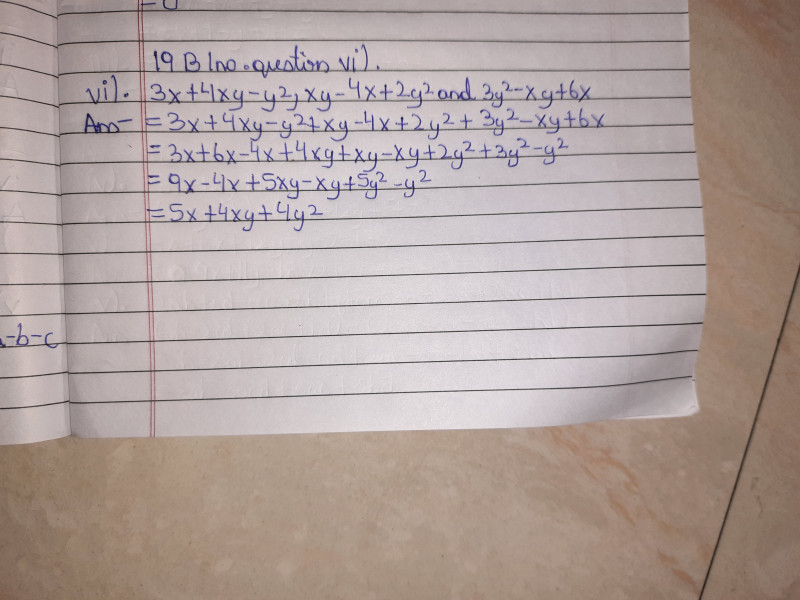 19 B 1no. question vi).
vi). 3x+4xy-y², xy-4x+2y² and 3y²-xy+6x
Ans- = 3x+4xy-y²+xy-4x+2y²+3y²-xy+6x
= 3x+6x-4x+4xy+xy-xy+2y²+3y²-y²
= 9x-4x+5xy-xy+5y²-y²
= 5x+4xy+4y²
-b-c